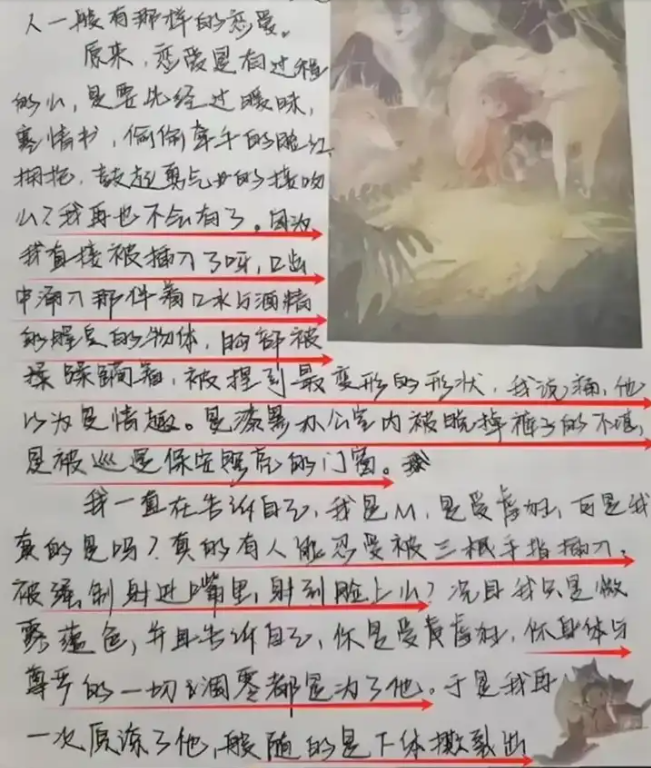 人一般有那样的恋爱。
原来，恋爱是有过程
的么，是要先经过暧昧，
写情书，偷偷牵手的脸红
拥抱，鼓起勇气的接吻
么？我再也不会有了。因为
我直接被插入了呀，口
中涌入那件着口水与酒精
的腥臭的物体，胸部被
揉躁蹂躏着，被捏到最变形的形状，我说痛，他
以为是情趣。是漆黑办公室内被脱掉裤子的不堪，
是被巡逻保安照亮的门窗。
我一直在告诉自己，我是M，是受虐狂，可是我
真的是吗？真的有人能忍受被三根手指插入，
被强制射进嘴里，射到脸上么？况且我只是做
并且告诉自己，你是受虐狂，你身体与
尊严的一切凋零都是为了他。于是我再
一次原谅了他，般随的是下体撕裂出